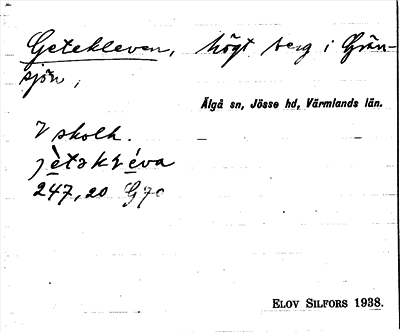 Getekleven, högt berg i Grän-
sjön;
Älgå sn, Jösse hd, Värmlands län.
V skolh.
jètəkléva
247,20 G70
ELOV SILFORS 1938.